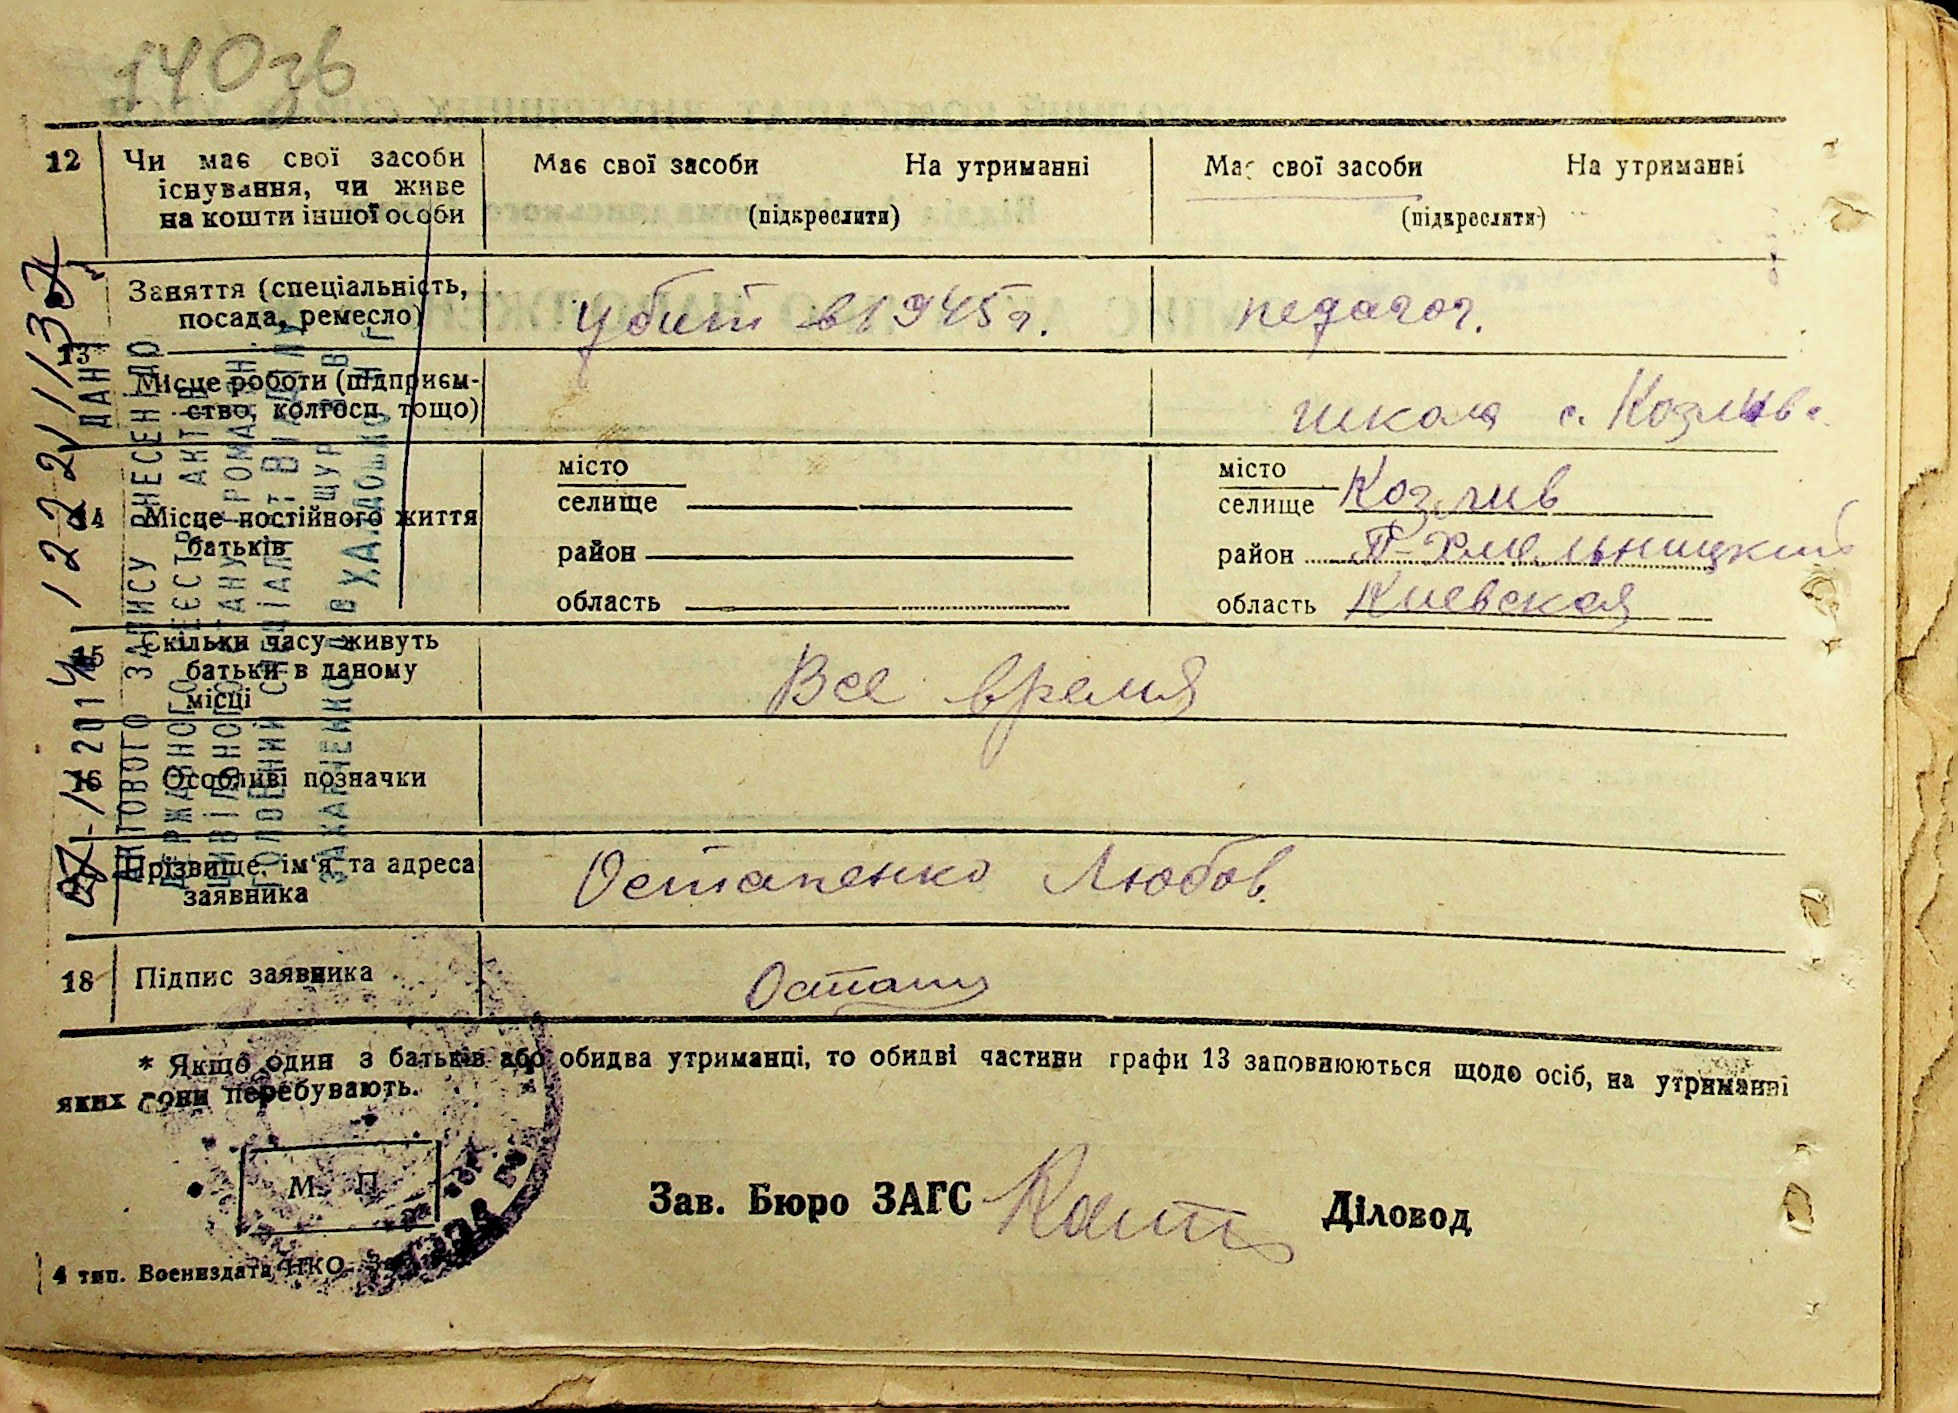 140зв
12 Чи має свої засоби існування, чи живе на кошти іншої особи
Має свої засоби На утриманні
(підкреслити)
Має свої засоби На утриманні
(підкреслити)
13 Заняття (спеціальність, посада, ремесло)
убит в 1945 г.
педагог.
Місце роботи (підприєм-
ство, колгосп тощо)
школа с. Козлив.
14 Місце постійного життя
батьків
місто
селище
район
область
місто
селище Козлив
район П-Хмельницкий
область Киевская
15 Скільки часу живуть
батьки в даному
місці
Все время
16 Особливі позначки
Прізвище, ім'я та адреса
заявника
Остапенко Любов.
18 Підпис заявника
Остапе
* Якщо один з батьків або обидва утриманці, то обидві частини графи 13 заповнюються щодо осіб, на утриманні
яких вони перебувають.
М. П.
Зав. Бюро ЗАГС
Діловод
4 тип. Воениздата НКО
АКТОВОГО ЗАПИСУ ВНЕСЕНІ ДО
ДЕРЖАВНОГО РЕЄСТР АКТІВ
ЦИВІЛЬНОГО СТАНУ ГРОМАДЯН.
ГОЛОВНИЙ СПЕЦІАЛІСТ ВІДДІЛУ